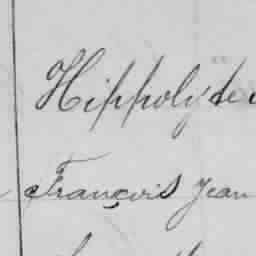 Hippolyte
François Jean